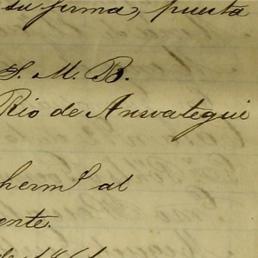 su firma, puesta
S. M. B.
Rio de Anwategui
herm.l al
ente.